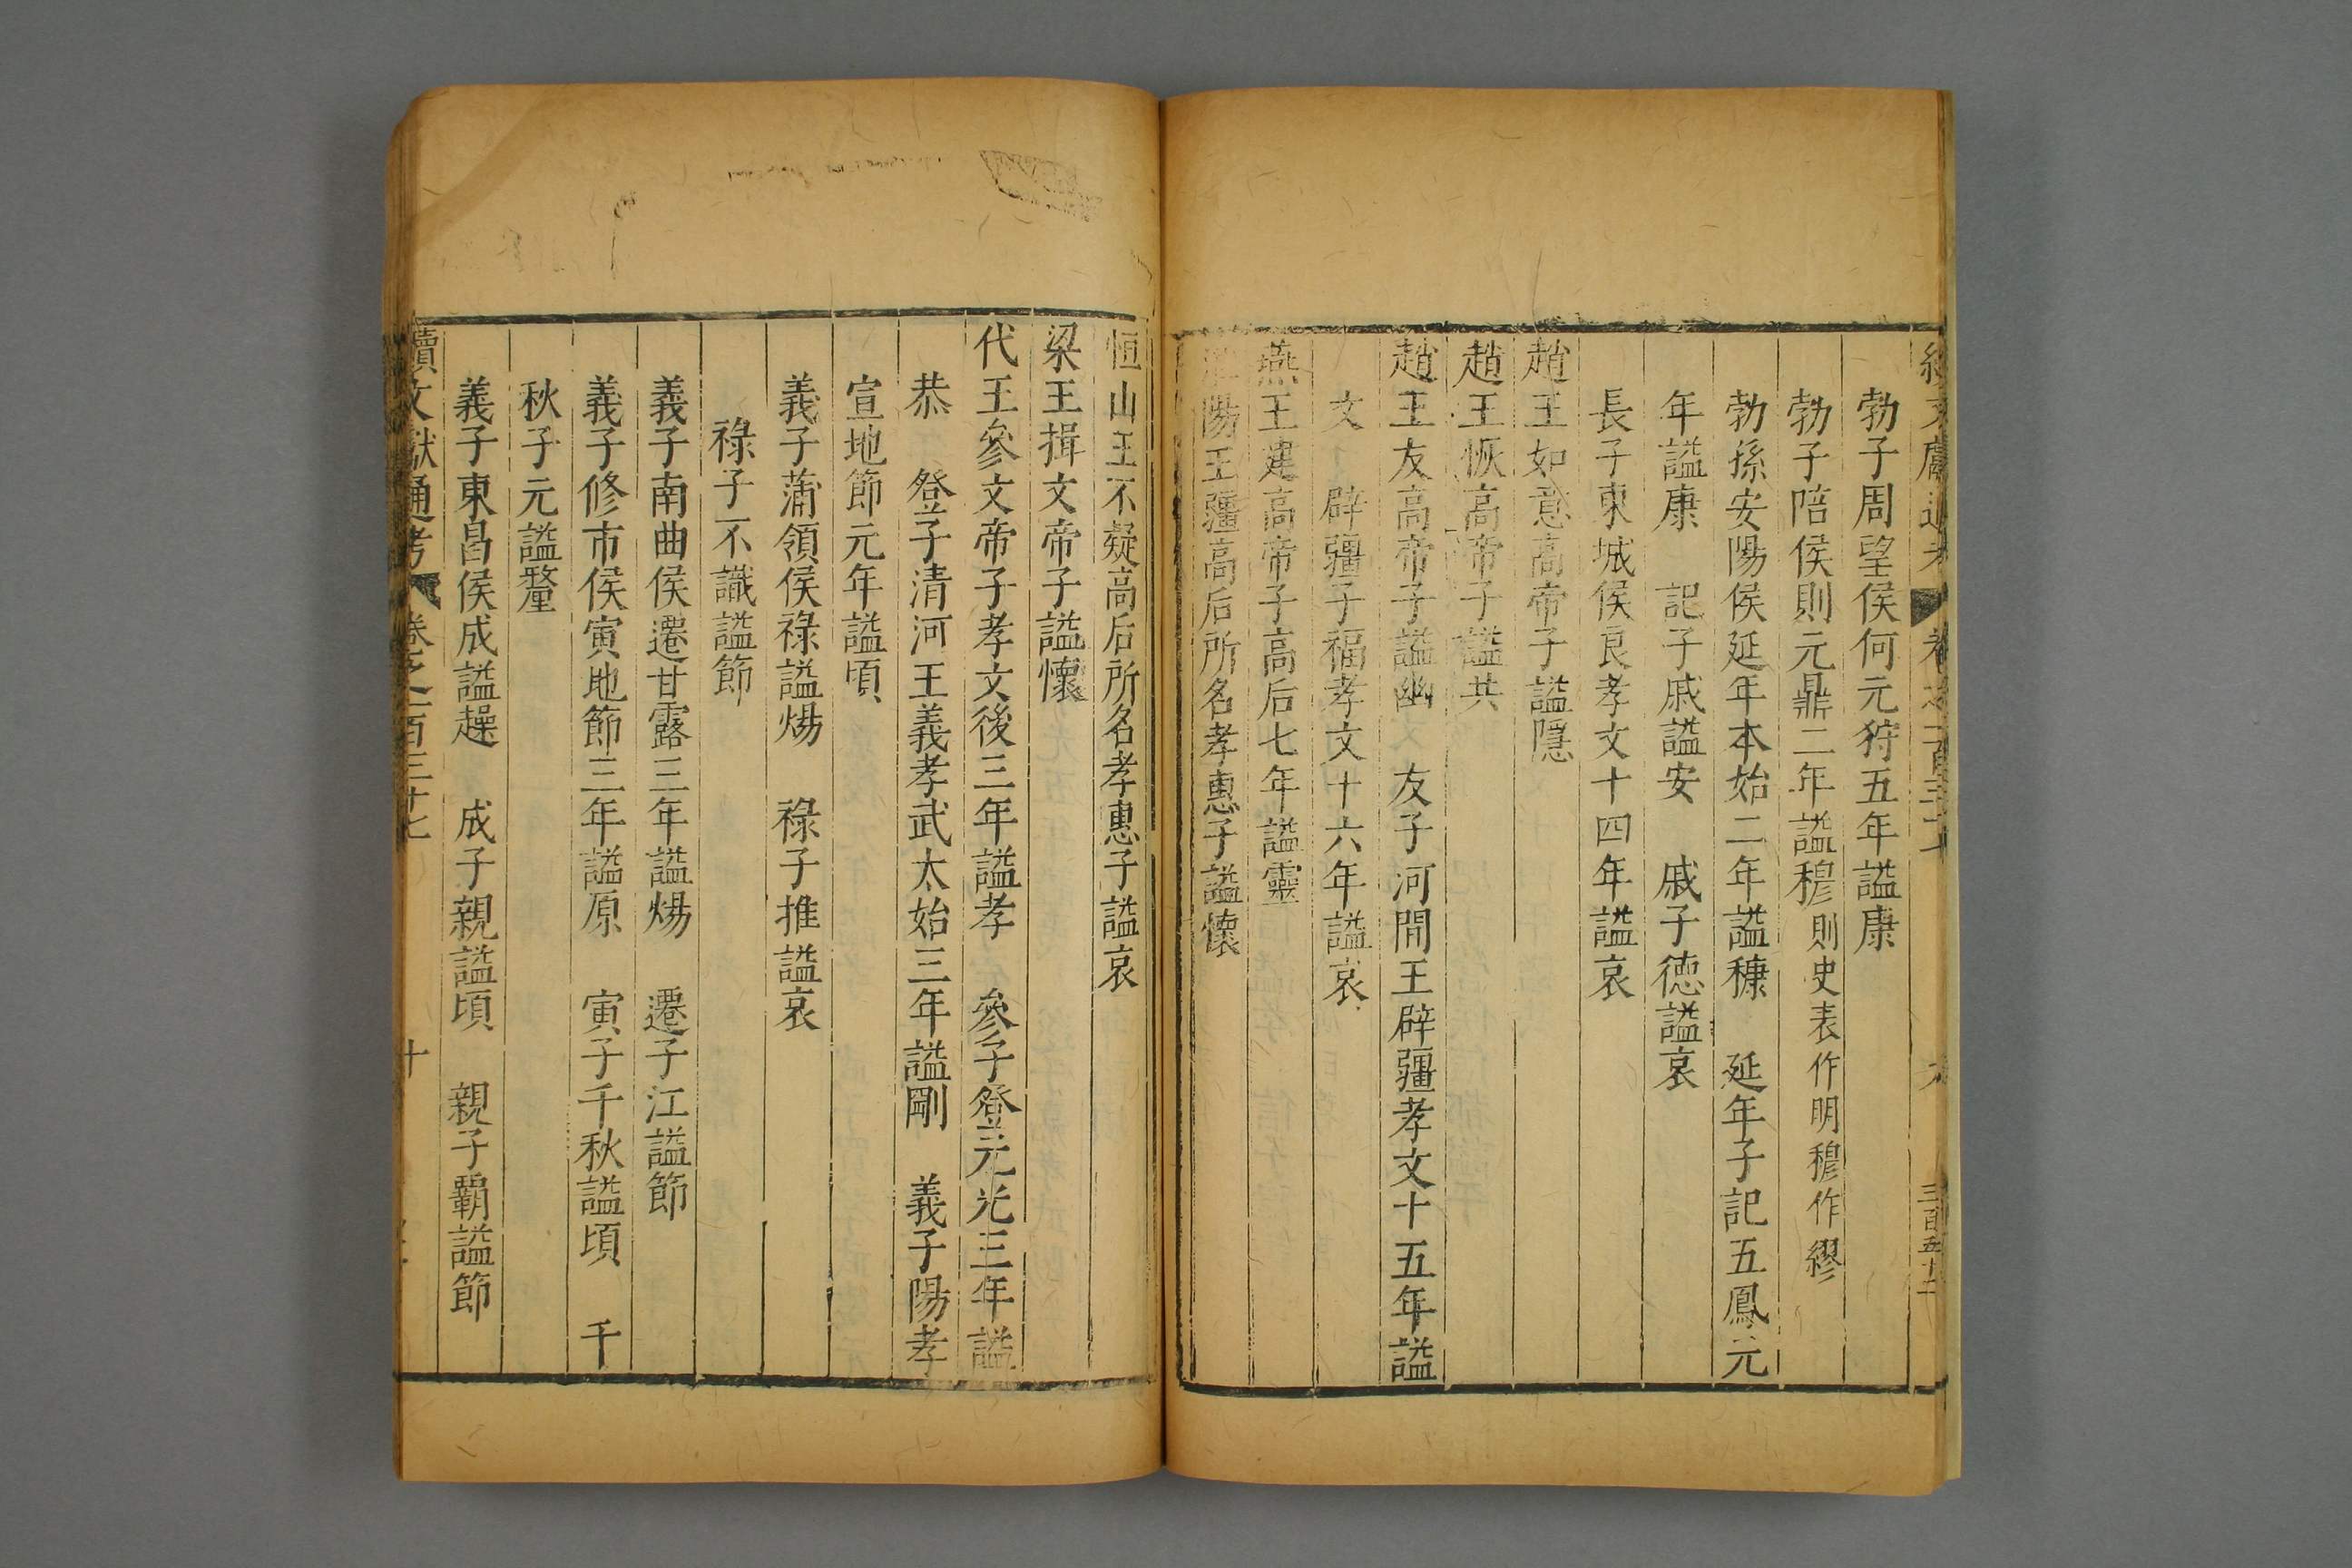 勃子周望侯何元狩五年諡康
勃子陪侯則元鼎二年諡穆則史表作明穆作繆
勃孫安陽侯延年本始二年諡穅　延年子記五鳳元
年諡康　記子戚諡安　戚子徳諡哀
長子東城侯良孝文十四年諡哀
趙王如意高帝子諡隱
趙王恢高帝子諡共
趙王友高帝子諡幽　友子河間王辟疆孝文十五年諡
文　辟疆子福孝文十六年諡哀
燕王建高帝子高后七年諡靈
陽王疆高后所名孝惠子諡懷
恒山王不疑高后所名孝惠子諡哀
梁王揖文帝子諡懷
代王參文帝子孝文後三年諡孝　參子登元光三年諡
恭　登子清河王義孝武太始三年諡剛　義子陽孝
宣地節元年諡頃
義子蒲領侯祿諡煬　祿子推諡哀
祿子不識諡節
義子南曲侯遷甘露三年諡煬　遷子江諡節
義子修市侯寅地節三年諡原　寅子千秋諡頃　千
秋子元諡釐
義子東昌侯成諡趮　成子親諡頃　親子霸諡節
續文獻通考　卷之一百三十七　十